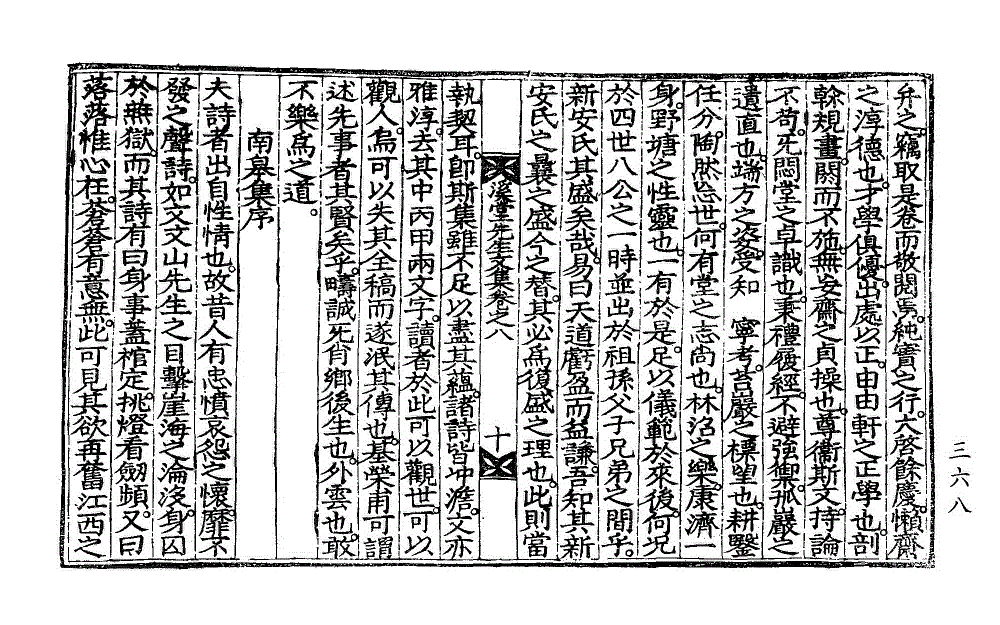 弁之竊取是卷而敬閱焉純實之行大啓餘慶懶齋
之淳德也才學俱優出處以正由由軒之正學也剖
榦規畫閎而不施無安齋之貞操也尊衞斯文持論
不苟先悶堂之卓識也秉禮履經不避強禦孤嚴之
遺直也端方之姿受知 寧考苔巖之標望也耕鑿
任分陶然忘世何有堂之志尚也林沼之樂康濟一
身野塘之性靈也一有於是足以儀範於來後何況
於四世八公之一時並出於祖孫父子兄弟之間乎
新安氏其盛矣哉易曰天道虧盈而益謙吾知其新
安氏之曩之盛今之替其必爲復盛之理也此則當
溪堂先生文集卷之八 十
執契耳卽斯集雖不足以盡其蘊諸詩皆冲澹文亦
雅淳去其中丙甲兩文字讀者於此可以觀世可以
觀人烏可以失其全稿而遂泯其傳也基榮甫可謂
述先事者其賢矣乎疇誠旡肖鄕後生也外雲也敢
不樂爲之道
南皐集序
夫詩者出自性情也故昔人有忠憤哀怨之懷靡不
發之聲詩如文文山先生之目擊崖海之淪沒身囚
於燕獄而其詩有曰身事蓋棺定挑燈看劒頻又曰
落落惟心在蒼蒼有意無此可見其欲再奮江西之
三六八